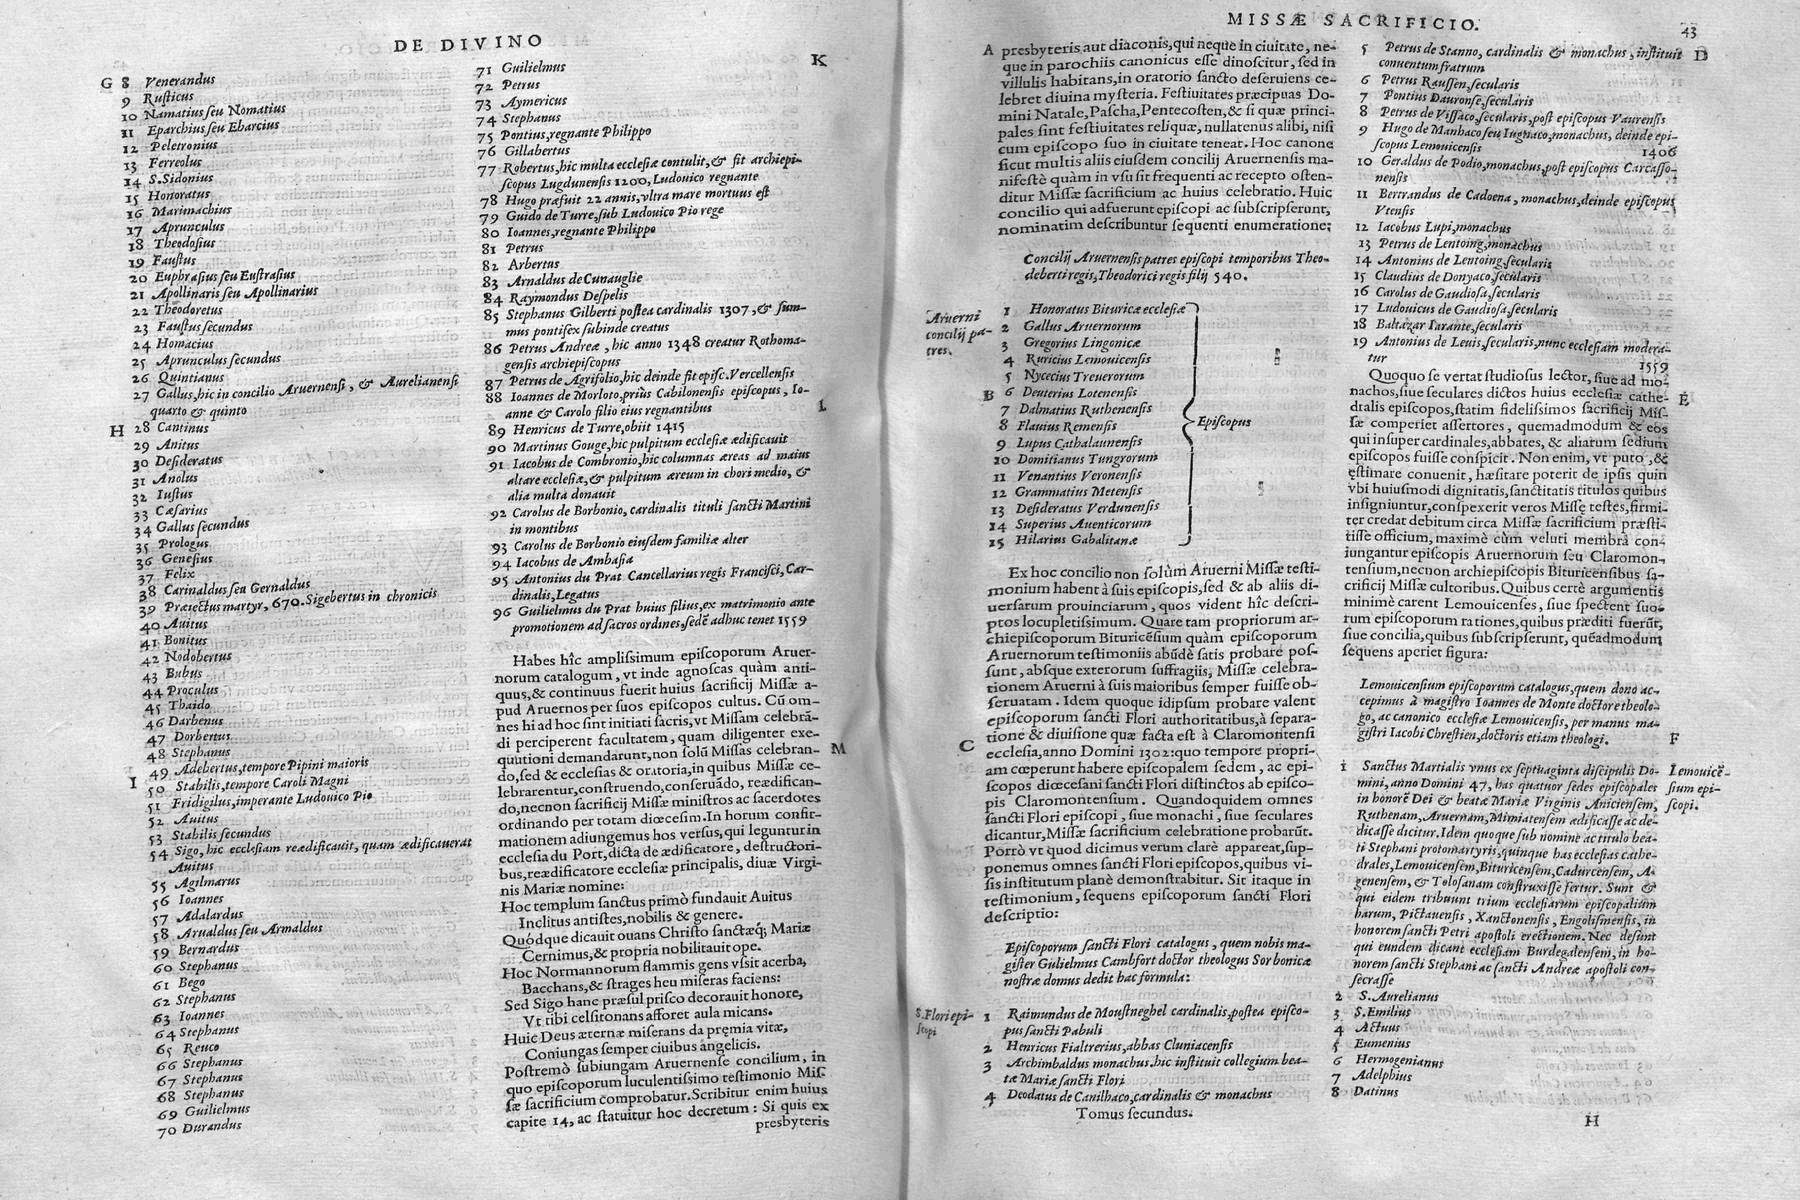 DE DIVINO
G 8 Venerandus
9 Rusticus
10 Namatius seu Nomatius
11 Eparchius seu Ebarcius
12 Peletronius
13 Ferreolus
14 S.Sidonius
15 Honoratus
16 Marimachius
17 Aprunculus
18 Theodosius
19 Faustus
20 Euphrasius seu Eustrasius
21 Apollinaris seu Apollinarius
22 Theodoretus
23 Faustus secundus
24 Homacius
25 Aprunculus secundus
26 Quintianus
27 Gallus, hic in concilio Aruernensi, & Aurelianensi
quarto & quinto
H 28 Cantinus
29 Anitus
30 Desideratus
31 Anolus
32 Iustus
33 Cæsarius
34 Gallus secundus
35 Prologus
36 Genesius
37 Felix
38 Carinaldus seu Gernaldus
39 Præiectus martyr, 670. Sigebertus in chronicis
40 Auitus
41 Bonitus
42 Nodobertus
43 Bubus
44 Proculus
45 Thaido
46 Darbenus
47 Dorbertus
48 Stephanus
49 Adebertus, tempore Pipini maioris
I 50 Stabilis, tempore Caroli Magni
51 Fridigilus, imperante Ludouico Pio
52 Auitus
53 Stabilis secundus
54 Sigo, hic ecclesiam reædificauit, quam ædificauerat
Auitus
55 Agilmarus
56 Ioannes
57 Adalardus
58 Arualdus seu Armaldus
59 Bernardus
60 Stephanus
61 Bego
62 Stephanus
63 Ioannes
64 Stephanus
65 Renco
66 Stephanus
67 Stephanus
68 Stephanus
69 Guilielmus
70 Durandus
71 Guilielmus K
72 Petrus
73 Aymericus
74 Stephanus
75 Pontius, regnante Philippo
76 Gillabertus
77 Robertus, hic multa ecclesiæ contulit, & fit archiepi-
scopus Lugdunensis 1200, Ludouico regnante
78 Hugo præfuit 22 annis, vltra mare mortuus est
79 Guido de Turre, sub Ludouico Pio rege
80 Ioannes, regnante Philippo
81 Petrus
82 Arbertus
83 Arnaldus de Cunauglie
84 Raymondus Despelis
85 Stephanus Gilberti postea cardinalis 1307, & sum-
mus pontifex subinde creatus
86 Petrus Andreæ, hic anno 1348 creatur Rothoma-
gensis archiepiscopus
87 Petrus de Agrifolio, hic deinde fit episc. Vercellensis
88 Ioannes de Morloto, priùs Cabilonensis episcopus, Io-
anne & Carolo filio eius regnantibus L
89 Henricus de Turre, obiit 1415
90 Martinus Gouge, hic pulpitum ecclesiæ ædificauit
91 Iacobus de Combronio, hic columnas æreas ad maius
altare ecclesiæ, & pulpitum æreum in chori medio, &
alia multa donauit
92 Carolus de Borbonio, cardinalis tituli sancti Martini
in montibus
93 Carolus de Borbonio eiusdem familiæ alter
94 Iacobus de Ambasia
95 Antonius du Prat Cancellarius regis Francisci, Car-
dinalis, Legatus
96 Guilielmus du Prat huius filius, ex matrimonio ante
promotionem ad sacros ordines, sedē adhuc tenet 1559
Habes hîc amplissimum episcoporum Aruer-
norum catalogum, vt inde agnoscas quàm anti-
quus, & continuus fuerit huius sacrificij Missæ a-
pud Aruernos per suos episcopos cultus. Cū om-
nes hi ad hoc sint initiati sacris, vt Missam celebrā-
di perciperent facultatem, quam diligenter exe-
quutioni demandarunt, non solū Missas celebran- M
do, sed & ecclesias & oratoria, in quibus Missæ ce-
lebrarentur, construendo, conseruādo, reædifican-
do, necnon sacrificij Missæ ministros ac sacerdotes
ordinando per totam diœcesim. In horum confir-
mationem adiungemus hos versus, qui leguntur in
ecclesia du Port, dicta de ædificatore, destructori-
bus, reædificatore ecclesiæ principalis, diuæ Virgi-
nis Mariæ nomine:
Hoc templum sanctus primò fundauit Auitus
Inclitus antistes, nobilis & genere.
Quódque dicauit ouans Christo sanctæq; Mariæ
Cernimus, & propria nobilitauit ope.
Hoc Normannorum flammis gens vssit acerba,
Bacchans, & strages heu miseras faciens:
Sed Sigo hanc præsul prisco decorauit honore,
Vt tibi celsitonans afforet aula micans.
Huic Deus æternæ miserans da præmia vitæ,
Coniungas semper ciuibus angelicis.
Postremò subiungam Aruernense concilium, in
quo episcoporum luculentissimo testimonio Mis-
sæ sacrificium comprobatur. Scribitur enim huius
capite 14, ac statuitur hoc decretum: Si quis ex
presbyteris
MISSÆ SACRIFICIO. 43
A presbyteris aut diaconis, qui neque in ciuitate, ne-
que in parochiis canonicus esse dinoscitur, sed in
villulis habitans, in oratorio sancto deseruiens ce-
lebret diuina mysteria. Festiuitates præcipuas Do-
mini Natale, Pascha, Pentecosten, & si quæ princi-
pales sint festiuitates reliquæ, nullatenus alibi, nisi
cum episcopo suo in ciuitate teneat. Hoc canone
sicut multis aliis eiusdem concilij Aruernensis ma-
nifestè quàm in vsu sit frequenti ac recepto osten-
ditur Missæ sacrificium ac huius celebratio. Huic
concilio qui adfuerunt episcopi ac subscripserunt,
nominatim describuntur sequenti enumeratione:
Concilij Aruernensis patres episcopi temporibus Theo-
deberti regis, Theodorici regis filij 540.
Aruerni
concilij pa-
tres.
1 Honoratus Bituricæ ecclesiæ
2 Gallus Aruernorum
3 Gregorius Lingonicæ
4 Ruricius Lemouicensis
5 Nycecius Treuerorum
B 6 Deuterius Lotenensis
7 Dalmatius Ruthenensis
8 Flauius Remensis
9 Lupus Cathalaunensis
10 Domitianus Tungrorum
11 Venantius Veronensis
12 Grammatius Metensis
13 Desideratus Verdunensis
14 Superius Auenticorum
15 Hilarius Gabalitanæ
Episcopus
Ex hoc concilio non solùm Aruerni Missæ testi-
monium habent à suis episcopis, sed & ab aliis di-
uersarum prouinciarum, quos vident hîc descri-
ptos locupletissimum. Quare tam propriorum ar-
chiepiscoporum Bituricēsium quàm episcoporum
Aruernorum testimoniis abūdè satis probare pos-
sunt, absque exterorum suffragiis, Missæ celebra-
tionem Aruerni à suis maioribus semper fuisse ob-
seruatam. Idem quoque idipsum probare valent
episcoporum sancti Flori authoritatibus, à separa-
tione & diuisione quæ facta est à Claromontensi
C ecclesia, anno Domini 1302: quo tempore propri-
am cœperunt habere episcopalem sedem, ac epi-
scopos diœcesani sancti Flori distinctos ab episco-
pis Claromontensium. Quandoquidem omnes
sancti Flori episcopi, siue monachi, siue seculares
dicantur, Missæ sacrificium celebratione probarūt.
Porrò vt quod dicimus verum clarè appareat, sup-
ponemus omnes sancti Flori episcopos, quibus vi-
sis institutum planè demonstrabitur. Sit itaque in
testimonium, sequens episcoporum sancti Flori
descriptio:
Episcoporum sancti Flori catalogus, quem nobis ma-
gister Gulielmus Cambfort doctor theologus Sorbonicæ
nostræ domus dedit hac formula:
S. Flori epi-
scopi
1 Raimundus de Moustneghel cardinalis, postea episco-
pus sancti Pabuli
2 Henricus Fialtrerius, abbas Cluniacensis
3 Archimbaldus monachus. hic instituit collegium bea-
tæ Mariæ sancti Flori
4 Deodatus de Canilhaco, cardinalis & monachus
Tomus secundus.
5 Petrus de Stanno, cardinalis & monachus, instituit D
conuentum fratrum
6 Petrus Raussen, secularis
7 Pontius Dauronse, secularis
8 Petrus de Vissaco, secularis, post episcopus Vaurensis
9 Hugo de Manhaco seu Iugnaco, monachus, deinde epi-
scopus Lemouicensis 1406
10 Geraldus de Podio, monachus, post episcopus Carcasso-
nensis
11 Bertrandus de Cadoena, monachus, deinde episcopus
Vtensis
12 Iacobus Lupi, monachus
13 Petrus de Lentoing, monachus
14 Antonius de Lentoing, secularis
15 Claudius de Donyaco, secularis
16 Carolus de Gaudiosa, secularis
17 Ludouicus de Gaudiosa, secularis
18 Baltazar Iarante, secularis
19 Antonius de Leuis, secularis, nunc ecclesiam modera-
tur 1559
Quoquo se vertat studiosus lector, siue ad mo-
nachos, siue seculares dictos huius ecclesiæ cathe- E
dralis episcopos, statim fidelissimos sacrificij Mis-
sæ comperiet assertores, quemadmodum & eos
qui insuper cardinales, abbates, & aliarum sedium
episcopos fuisse conspicit. Non enim, vt puto, &
ęstimare conuenit, hæsitare poterit de ipsis quin
vbi huiusmodi dignitatis, sanctitatis titulos quibus
insigniuntur, conspexerit veros Missę testes, firmi-
ter credat debitum circa Missæ sacrificium præsti-
tisse officium, maximè cùm veluti membra con-
iungantur episcopis Aruernorum seu Claromon-
tensium, necnon archiepiscopis Bituricensibus sa-
crificij Missæ cultoribus. Quibus certè argumentis
minimè carent Lemouicenses, siue spectent suo-
rum episcoporum rationes, quibus præditi fuerūt,
siue concilia, quibus subscripserunt, quēadmodum
sequens aperiet figura:
Lemouicensium episcoporum catalogus, quem dono ac-
cepimus à magistro Ioannes de Monte doctore theolo-
go, ac canonico ecclesiæ Lemouicensis, per manus ma-
gistri Iacobi Chrestien, doctoris etiam theologi. F
1 Sanctus Martialis vnus ex septuaginta discipulis Do-
mini, anno Domini 47, has quatuor sedes episcopales
in honorē Dei & beatæ Mariæ Virginis Aniciensem,
Ruthenam, Aruernam, Mimiatensem ædificasse ac de-
dicasse dicitur. Idem quoque sub nomine ac titulo bea-
ti Stephani protomartyris, quinque has ecclesias cathe-
drales, Lemouicensem, Bituricensem, Cadurcensem, A-
genensem, & Tolosanam construxisse fertur. Sunt &
qui eidem tribuunt trium ecclesiarum episcopalium
harum, Pictauensis, Xanctonensis, Engolismensis, in
honorem sancti Petri apostoli erectionem. Nec desunt
qui eundem dicant ecclesiam Burdegalensem, in ho-
norem sancti Stephani ac sancti Andreæ apostoli con-
secrasse
Lemouicē-
sium epi-
scopi.
2 S. Aurelianus
3 S. Emilius
4 Actuus
5 Eumenius
6 Hermogenianus
7 Adelphius
8 Datinus
H